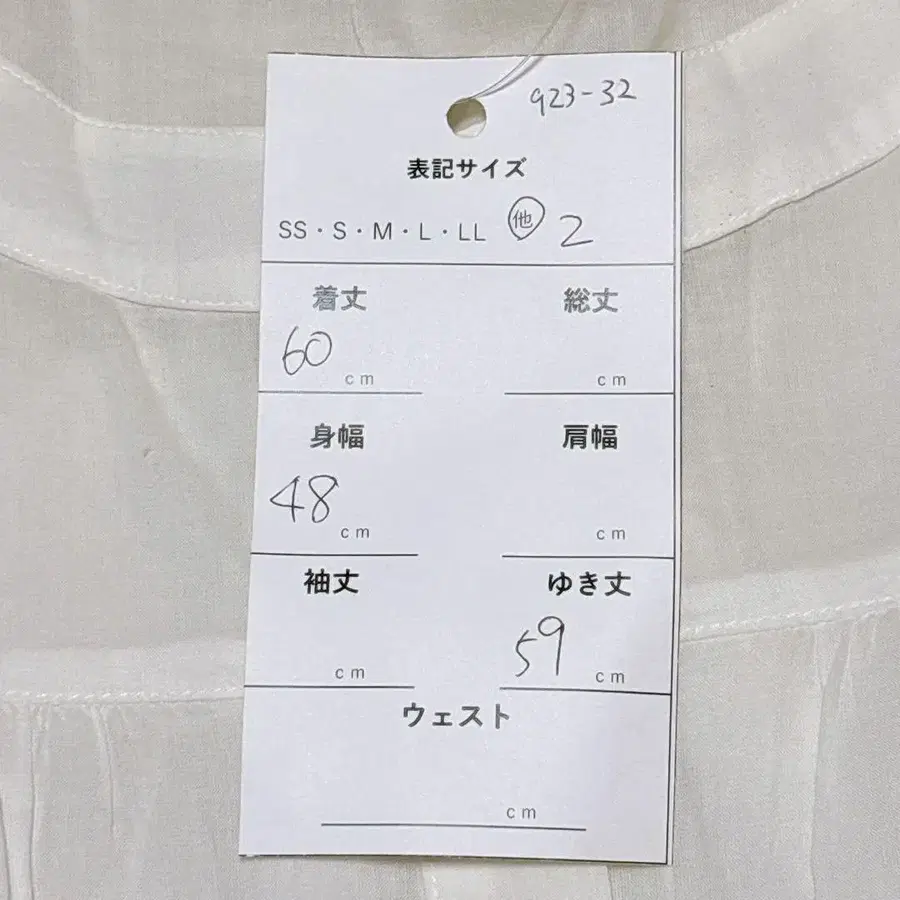 923-32
表記サイズ
SS・S・M・L・LL 他 2
着丈 総丈
60 cm cm
身幅 肩幅
48 cm cm
袖丈 ゆき丈
cm 59 cm
ウェスト
cm